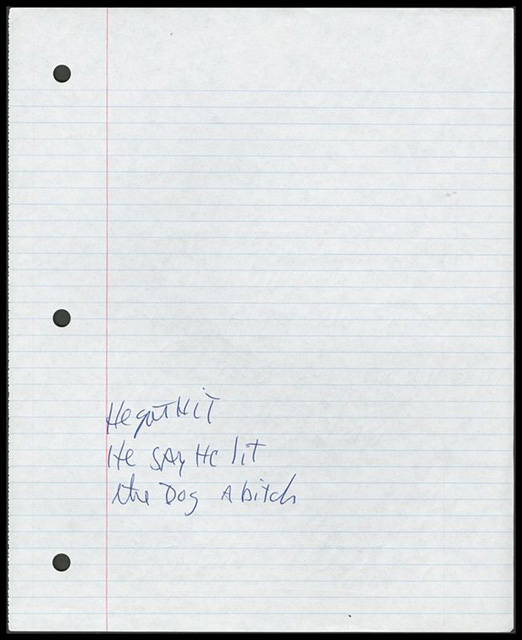 He got Hit
He say He lit
the Dog A bitch